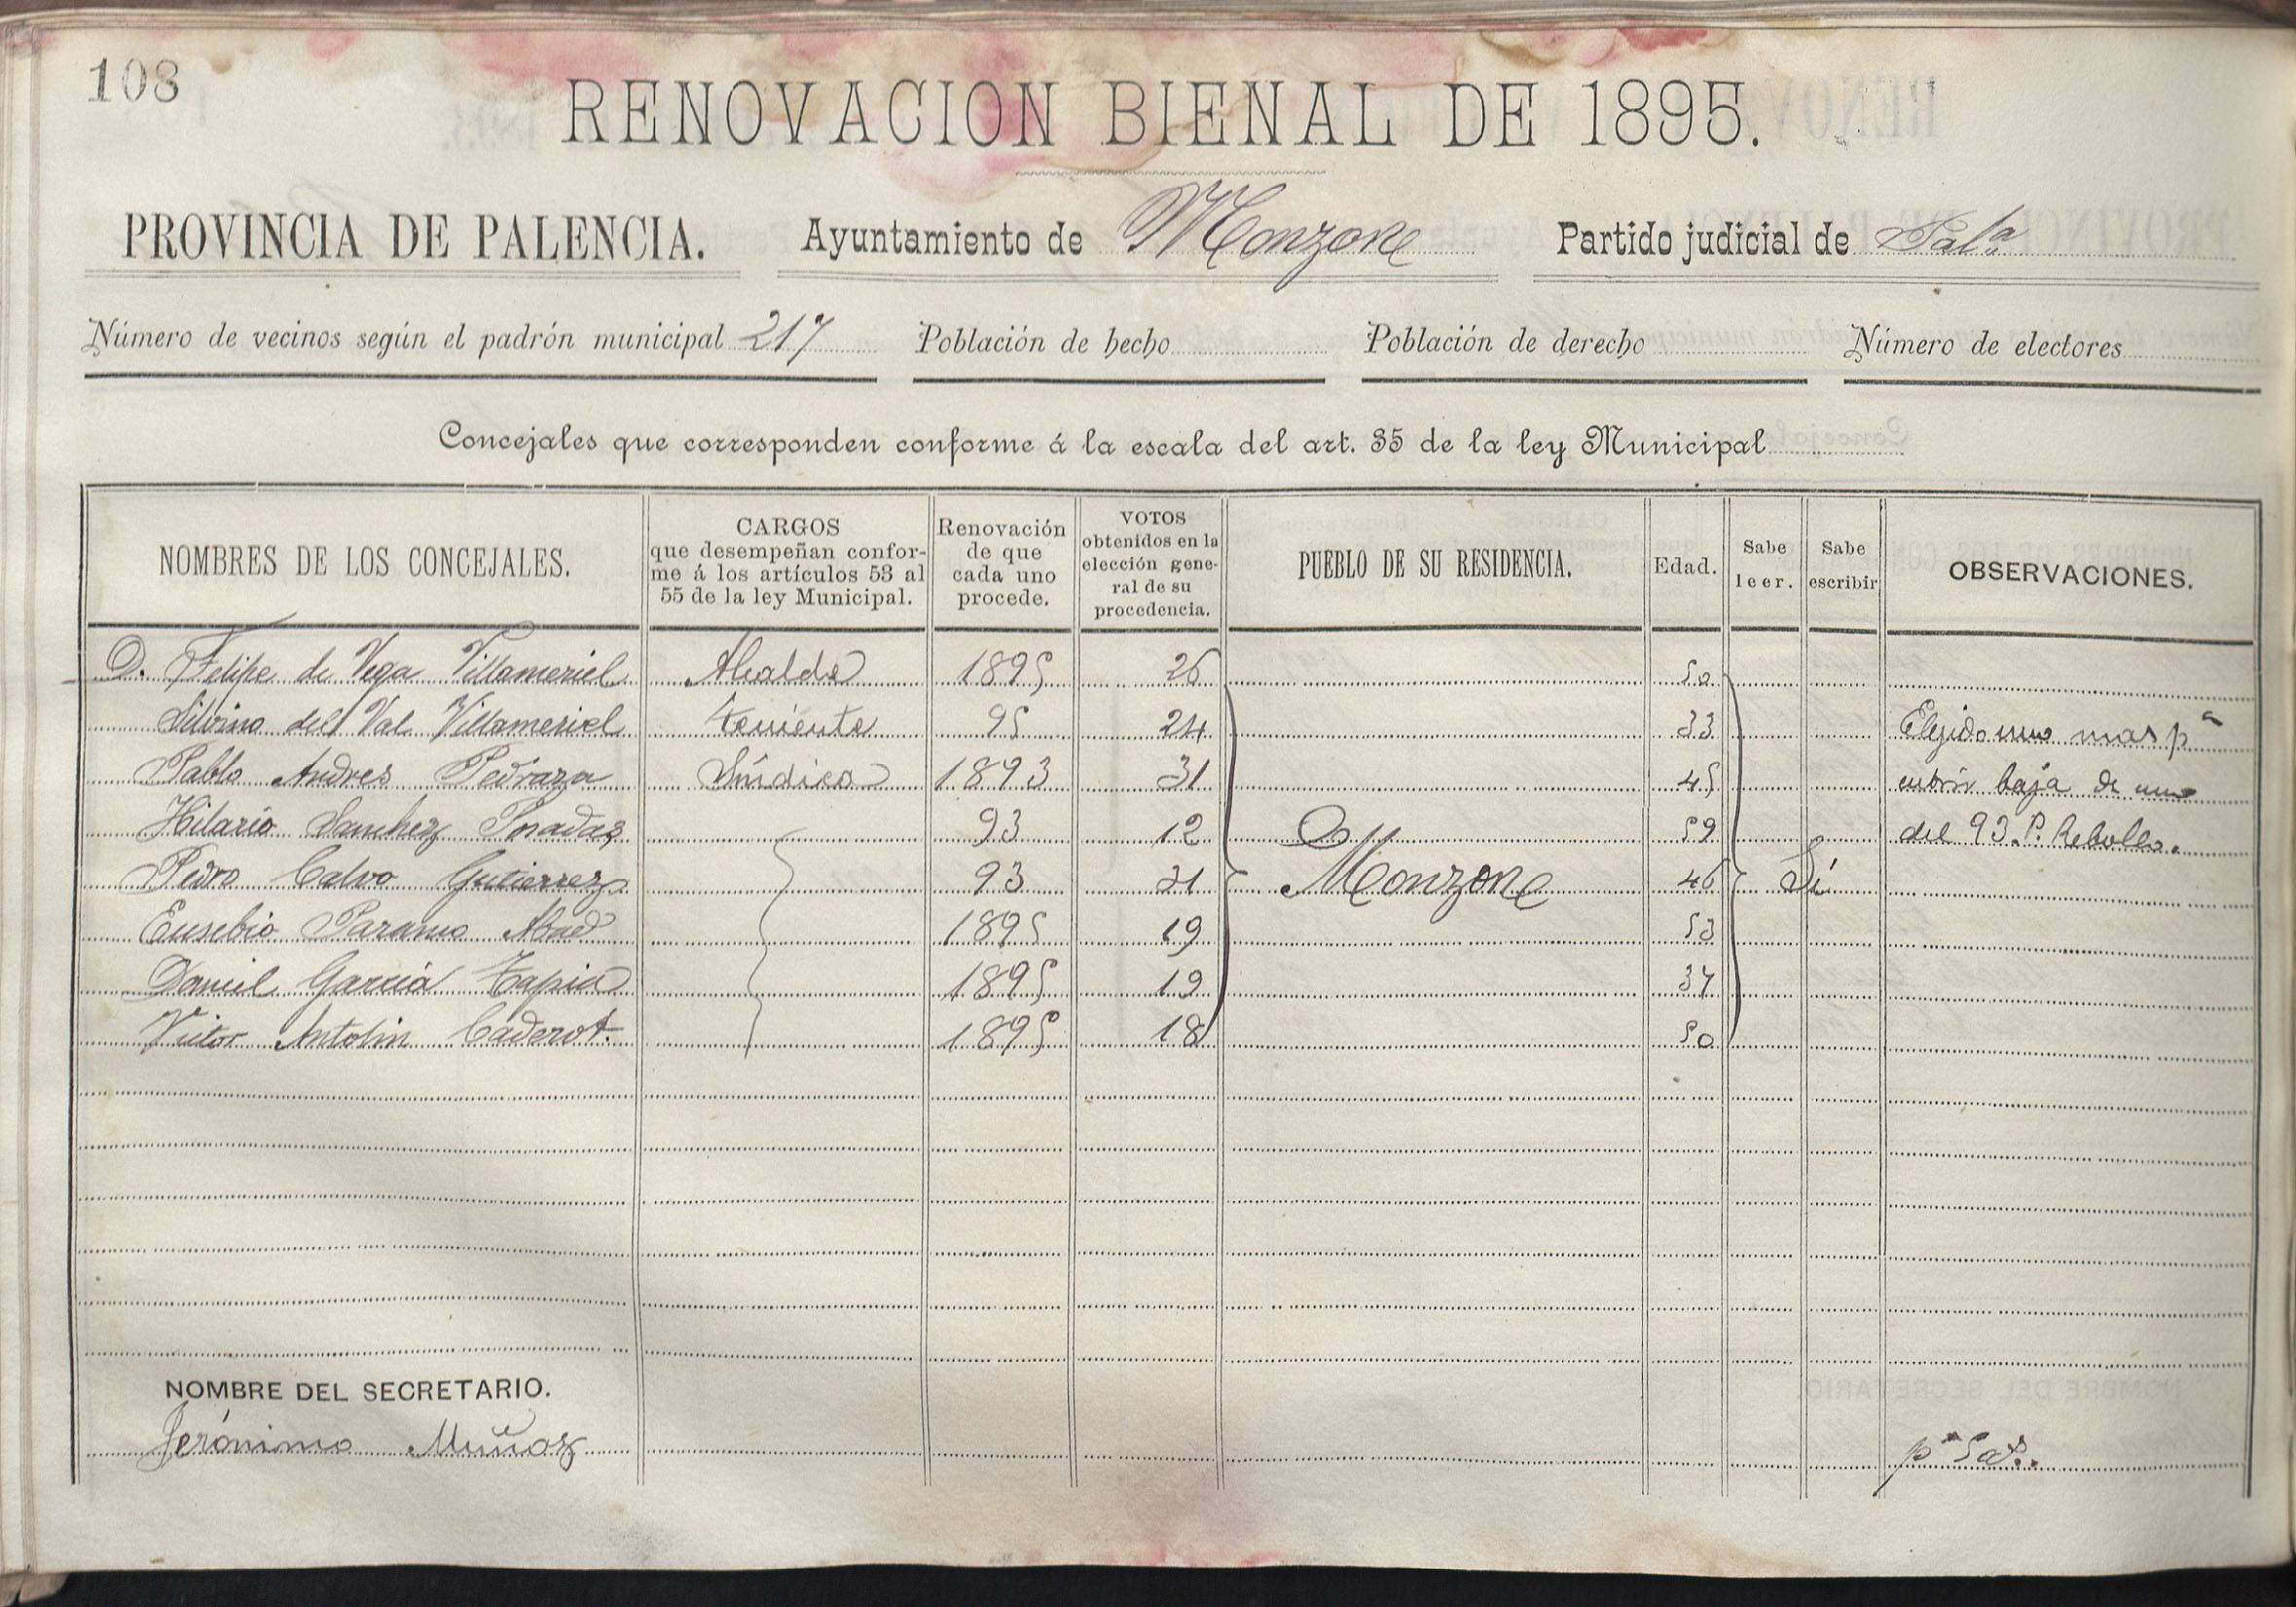 108
RENOVACION BIENAL DE 1895.
PROVINCIA DE PALENCIA. Ayuntamiento de Monzon Partido judicial de Pal.ª
Número de vecinos según el padrón municipal 217 Población de hecho Población de derecho Número de electores
Concejales que corresponden conforme á la escala del art. 35 de la ley Municipal
NOMBRES DE LOS CONCEJALES.
CARGOS
que desempeñan confor-
me á los artículos 53 al
55 de la ley Municipal.
Renovación
de que
cada uno
procede.
VOTOS
obtenidos en la
elección gene-
ral de su
procedencia.
PUEBLO DE SU RESIDENCIA.
Edad.
Sabe
leer.
Sabe
escribir
OBSERVACIONES.
D. Felipe de Vega Villameriel Alcalde 1895 26 50
Silvino del Val Villameriel teniente 95 24 33 Elejido uno mas pª
Pablo Andres Pedraza Síndico 1893 31 45 cubrir baja de uno
Hilario Sanchez Posadas 93 12 59 del 93. P. Rebollo.
Pedro Calvo Gutierrez 93 21 Monzon 46 Sí
Eusebio Paramo Abad 1895 19 53
Daniel García Tapia 1895 19 37
Victor Antolin Caderot. 1895 18 50
NOMBRE DEL SECRETARIO.
Jerónimo Muñoz